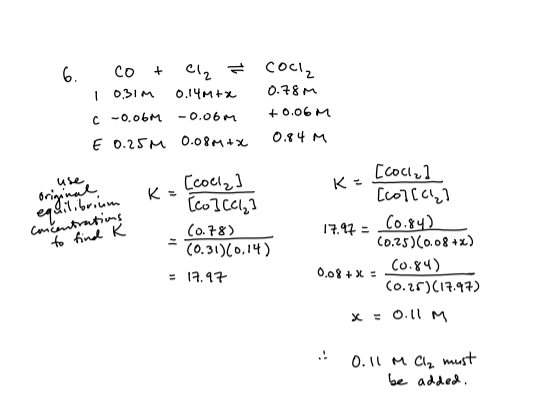 6. CO + Cl₂ ⇌ COCl₂
I 0.31M 0.14M+x 0.78M
C -0.06M -0.06M +0.06M
E 0.25M 0.08M+x 0.84 M
use
original
equilibrium
concentrations
to find K
K = [COCl₂] / [CO][Cl₂]
= (0.78) / (0.31)(0.14)
= 17.97
K = [COCl₂] / [CO][Cl₂]
17.97 = (0.84) / (0.25)(0.08+x)
0.08+x = (0.84) / (0.25)(17.97)
x = 0.11 M
∴ 0.11 M Cl₂ must
be added.